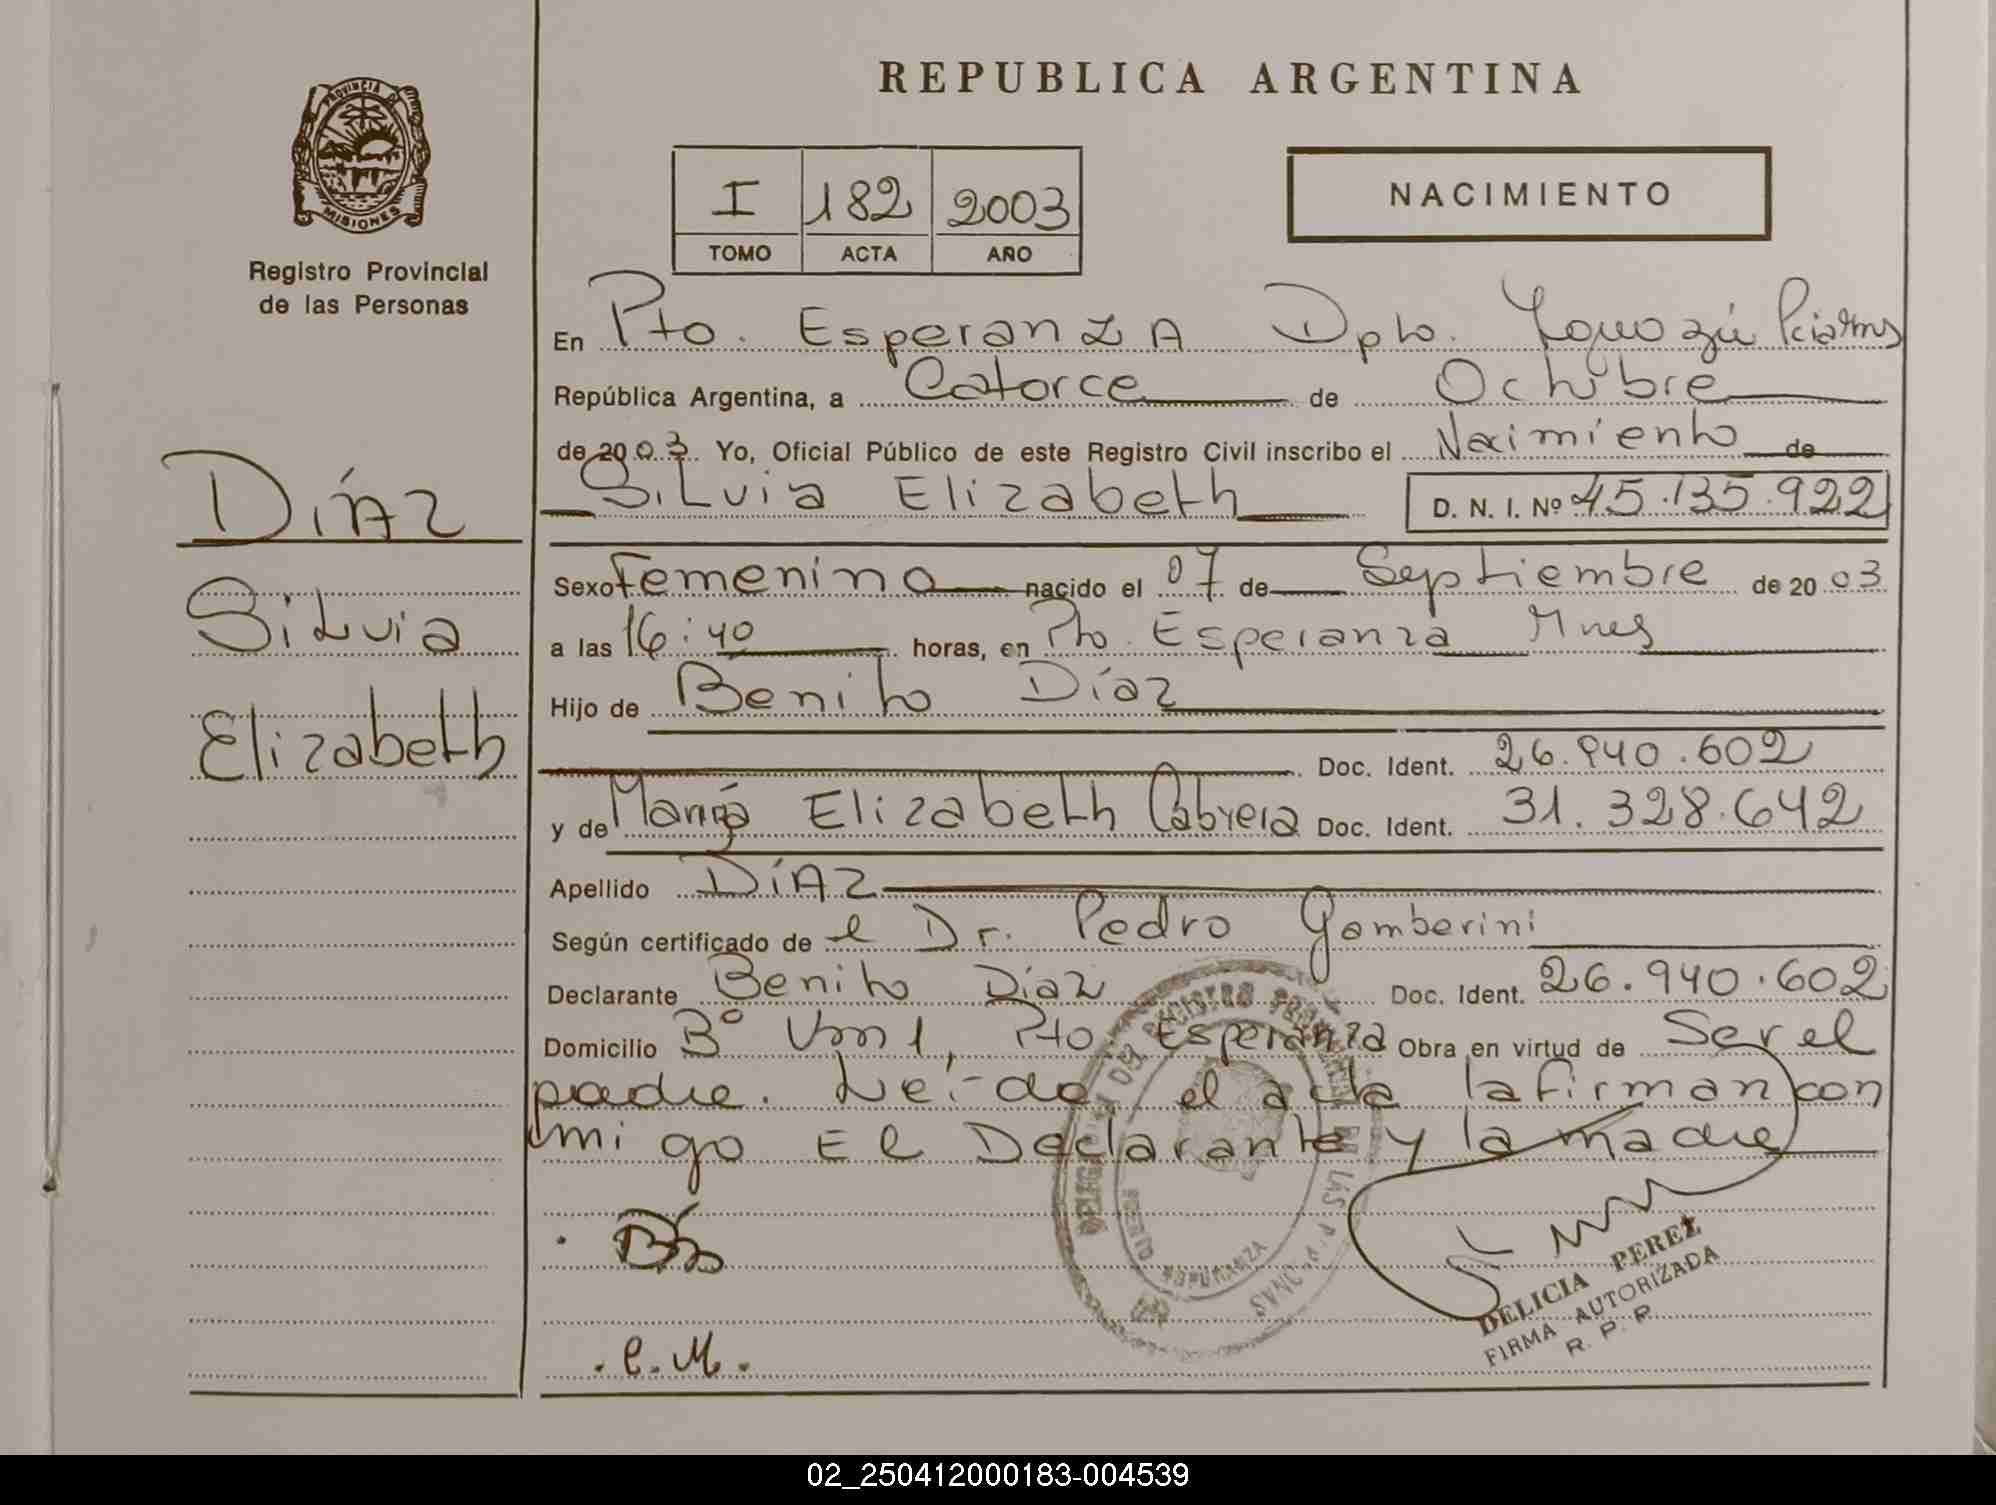 REPUBLICA ARGENTINA
PROVINCIA DE
MISIONES
Registro Provincial
de las Personas
I 182 2003
TOMO ACTA AÑO
NACIMIENTO
En Pto. Esperanza Dpto. Iguazú
República Argentina, a Catorce de Octubre
de 2003. Yo, Oficial Público de este Registro Civil inscribo el Nacimiento de
Silvia Elizabeth D. N. I. Nº 45.135.922
DÍAZ
Silvia
Elizabeth
Sexo Femenino nacido el 07 de Septiembre de 2003
a las 16:40 horas, en Pto. Esperanza Mnes
Hijo de Benito Díaz
Doc. Ident. 26.940.602
y de María Elizabeth Cabrera Doc. Ident. 31.328.642
Apellido DÍAZ
Según certificado de el Dr. Pedro Gamberini
Declarante Benito Díaz Doc. Ident. 26.940.602
Domicilio Bº Unm 1, Pto Esperanza Obra en virtud de Ser el
padre. Leída el acta la firman con
migo El Declarante y la madre
DELEGACION DEL REGISTRO PROVINCIAL DE LAS PERSONAS
PUERTO ESPERANZA
DELICIA PEREZ
FIRMA AUTORIZADA
R. P. P.
.C.M.
02_250412000183-004539